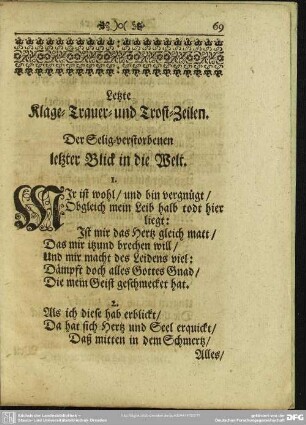 69
Letzte
Klage- Trauer- und Trost-Zeilen.
Der Selig-verstorbenen
letzter Blick in die Welt.
1.
MIr ist wohl/ und bin vergnügt/
Obgleich mein Leib halb todt hier
liegt:
Ist mir das Hertz gleich matt/
Das mir itzund brechen will/
Und mir macht des Leidens viel:
Dämpft doch alles Gottes Gnad/
Die mein Geist geschmecket hat.
2.
Als ich diese hab erblickt/
Da hat sich Hertz und Seel erquickt/
Daß mitten in dem Schmertz/
Alles/
gefördert von der
Deutschen Forschungsgemeinschaft
DFG